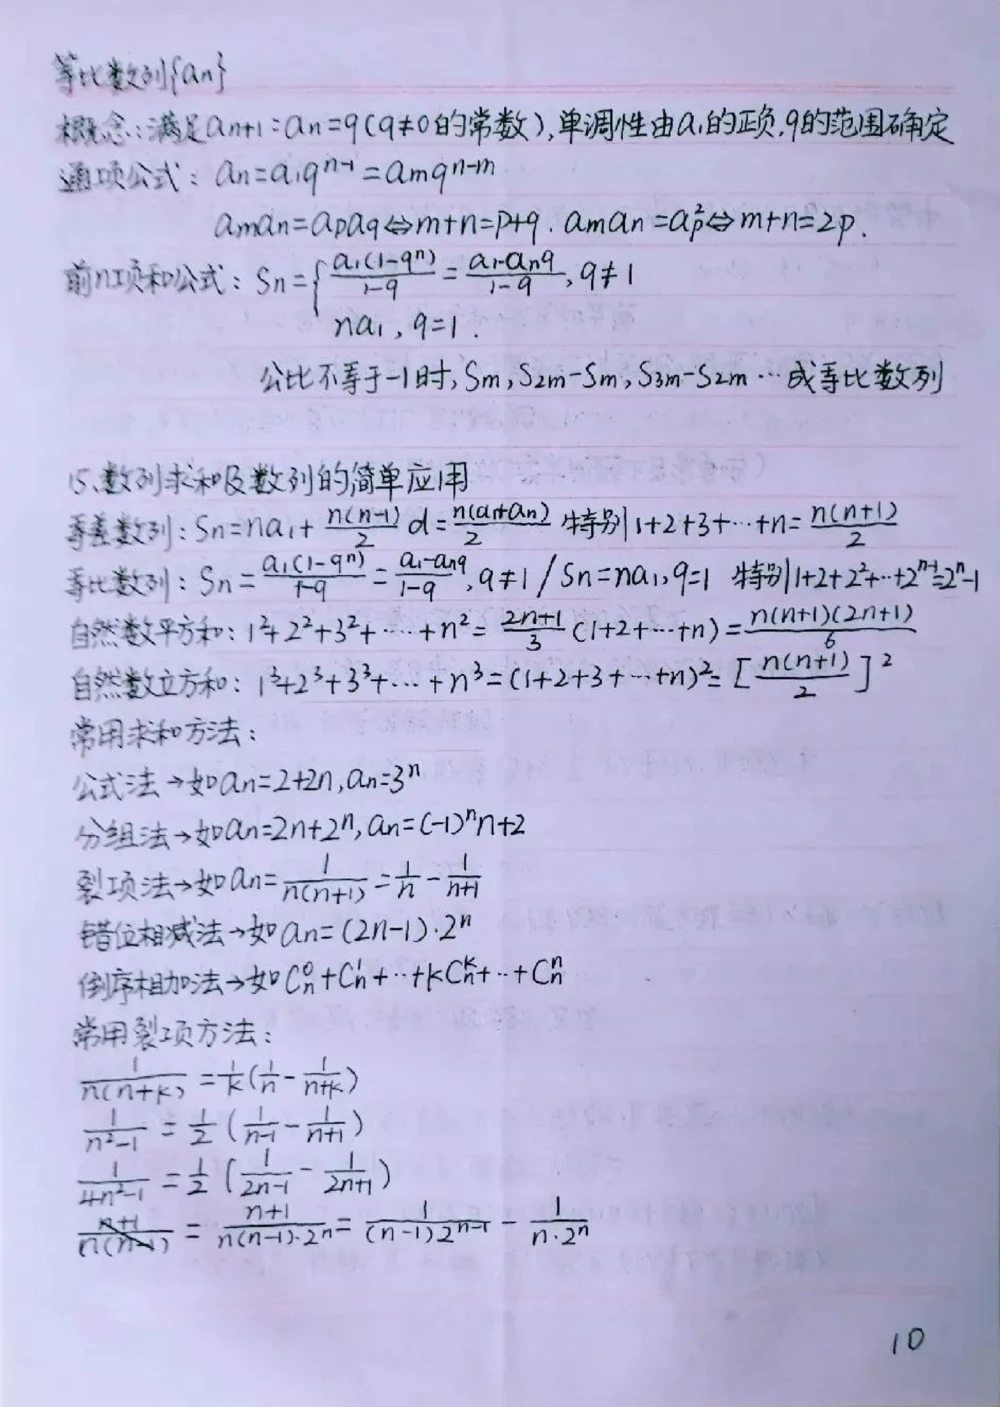 等比数列{an}
概念:满足an+1:an=q(q≠0的常数),单调性由a₁的正负,q的范围确定
通项公式:an=a₁qⁿ⁻¹=amqⁿ⁻ᵐ
aman=apaq⇔m+n=p+q.aman=ap²⇔m+n=2p.
前n项和公式:Sn={a₁(1-qⁿ)/1-q=a₁-anq/1-q,q≠1
na₁,q=1.
公比不等于-1时,Sm,S2m-Sm,S3m-S2m…成等比数列
15.数列求和及数列的简单应用
等差数列:Sn=na₁+n(n-1)/2 d=n(a₁+an)/2 特别1+2+3+…+n=n(n+1)/2
等比数列:Sn=a₁(1-qⁿ)/1-q=a₁-anq/1-q,q≠1/Sn=na₁,q=1 特别1+2+2²+…+2ⁿ⁻¹=2ⁿ-1
自然数平方和:1²+2²+3²+…+n²=2n+1/3(1+2+…+n)=n(n+1)(2n+1)/6
自然数立方和:1³+2³+3³+…+n³=(1+2+3+…+n)²=[n(n+1)/2]²
常用求和方法:
公式法→如an=2+2n,an=3ⁿ
分组法→如an=2n+2ⁿ,an=(-1)ⁿn+2
裂项法→如an=1/n(n+1)=1/n-1/n+1
错位相减法→如an=(2n-1)·2ⁿ
倒序相加法→如Cn⁰+Cn¹+…+kCnᵏ+…+Cnⁿ
常用裂项方法:
1/n(n+k)=1/k(1/n-1/n+k)
1/n²-1=1/2(1/n-1-1/n+1)
1/4n²-1=1/2(1/2n-1-1/2n+1)
n+1/n(n-1)=n+1/n(n-1)·2ⁿ=1/(n-1)2ⁿ⁻¹-1/n·2ⁿ
10